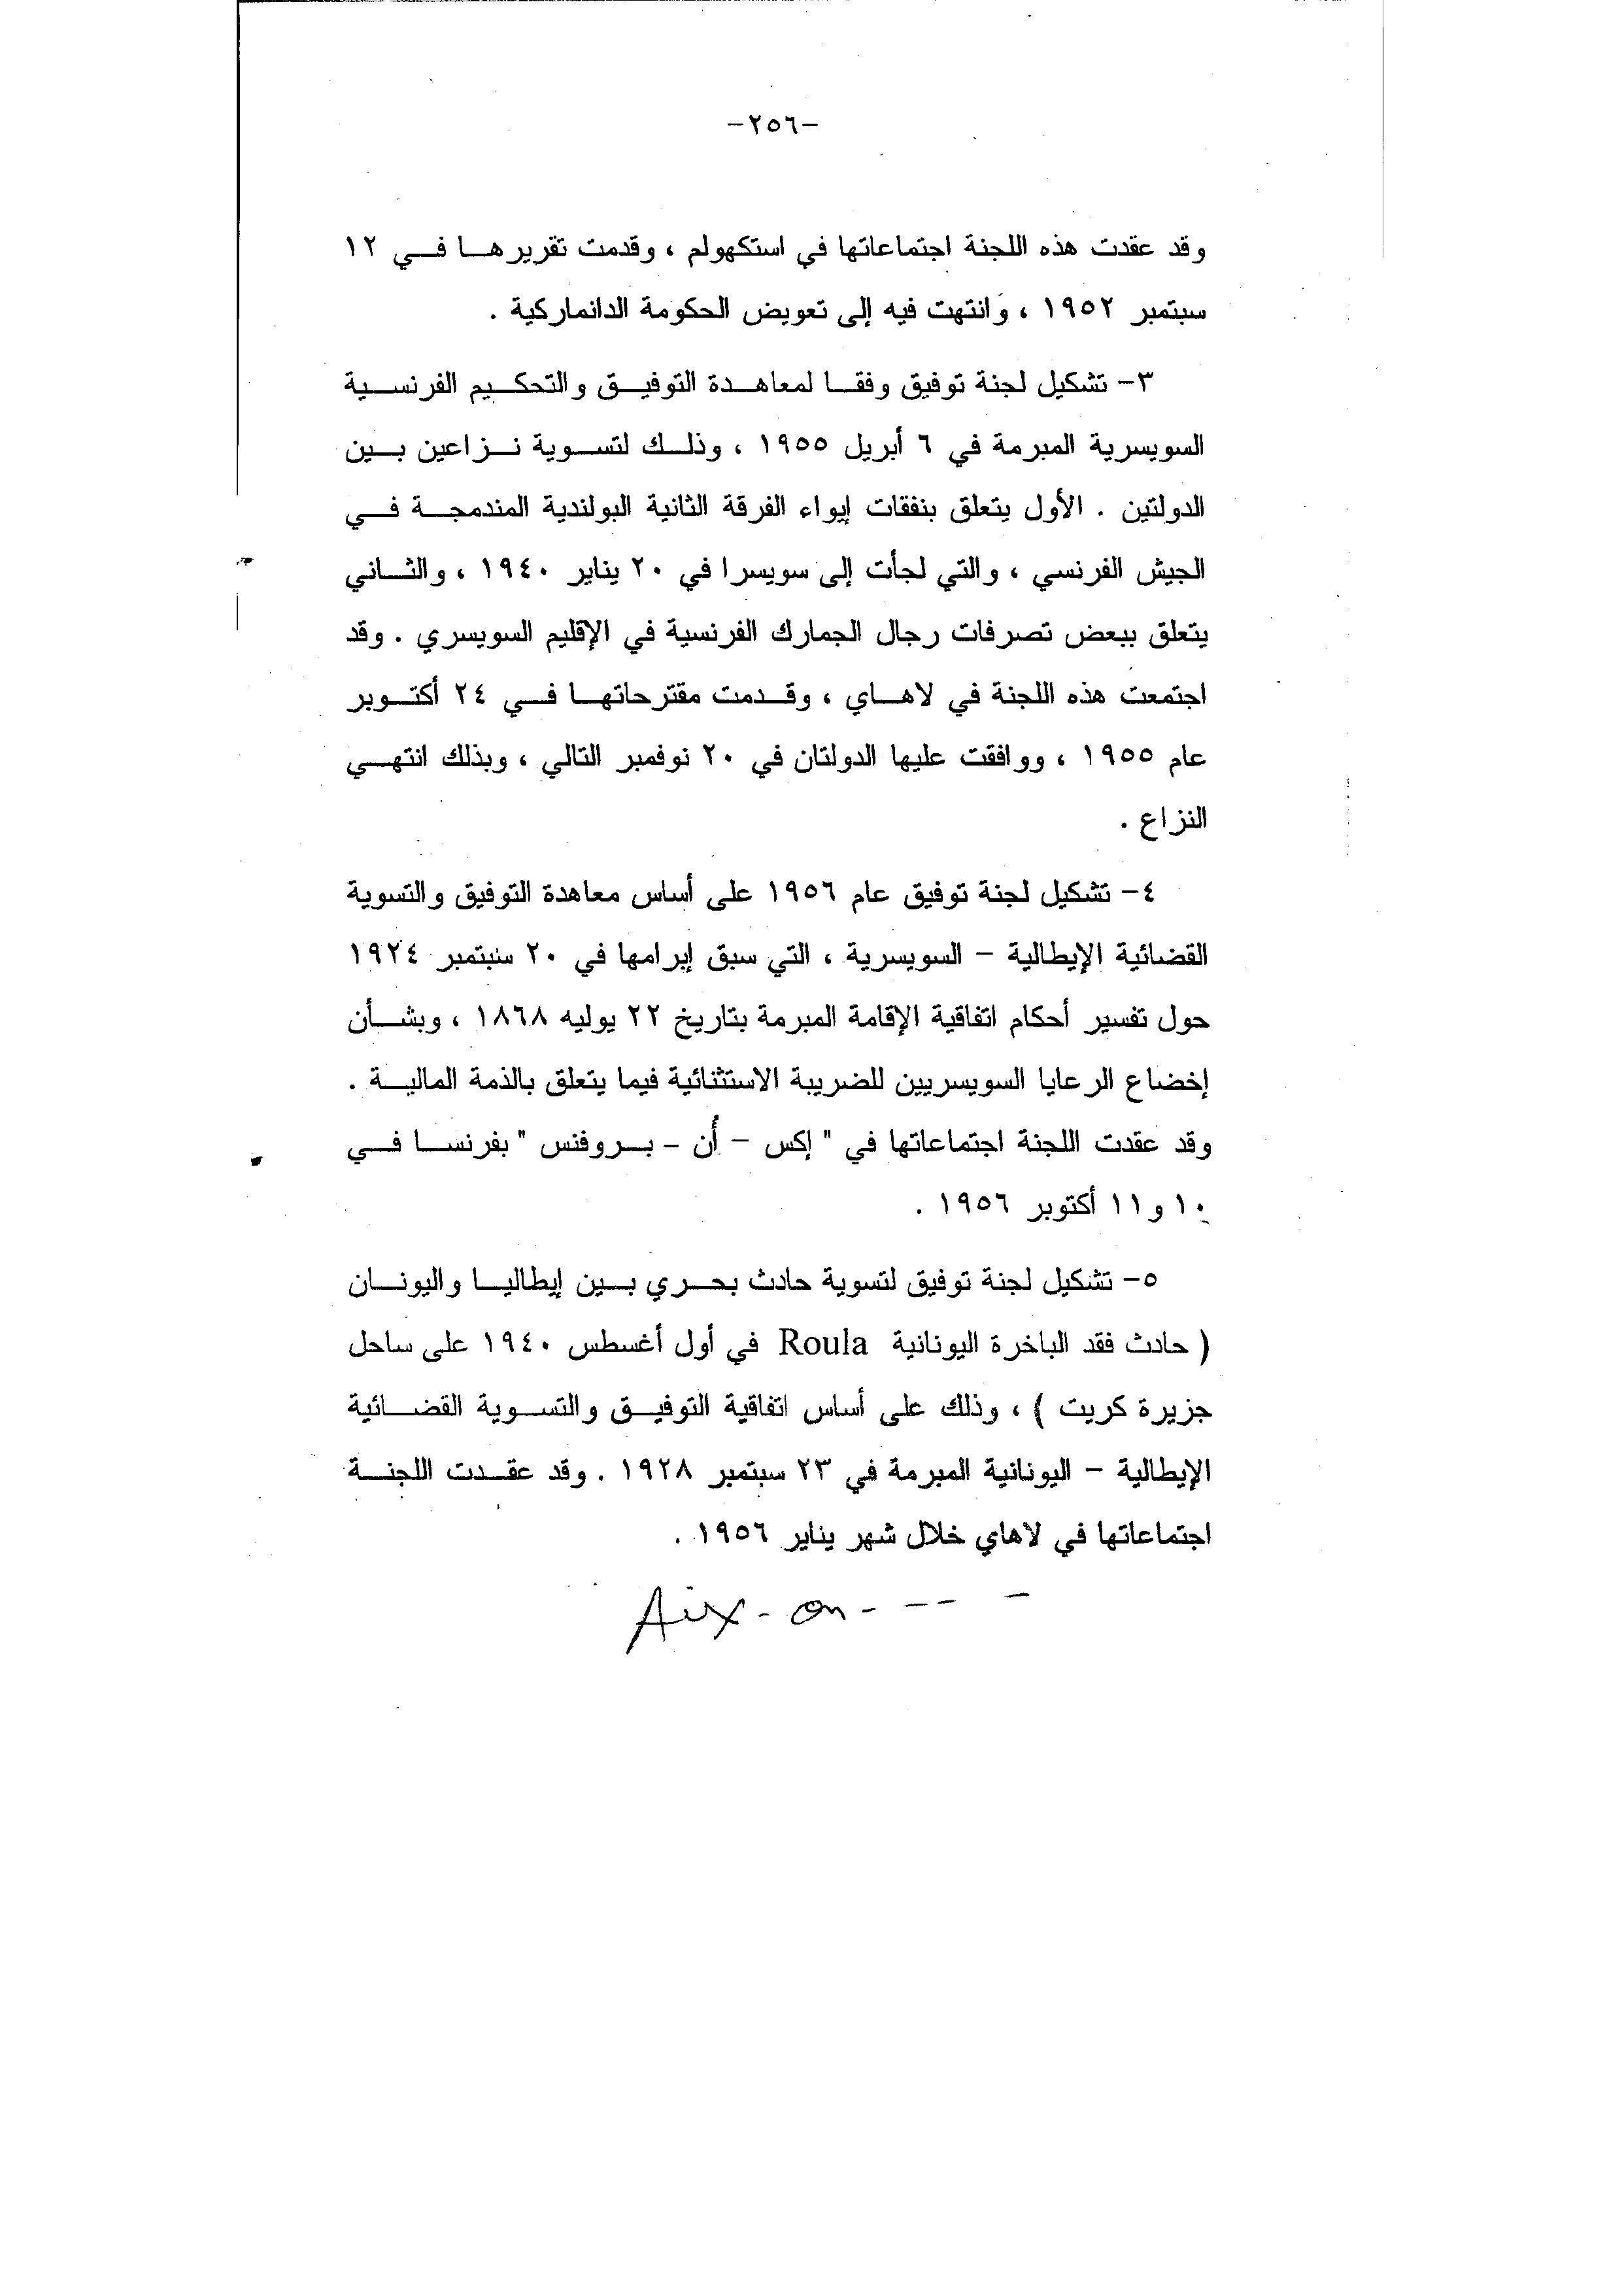 -٢٥٦-
وقد عقدت هذه اللجنة اجتماعاتها في استكهولم ، وقدمت تقريرها في ١٢
سبتمبر ١٩٥٢ ، وانتهت فيه إلى تعويض الحكومة الدانماركية .
٣- تشكيل لجنة توفيق وفقا لمعاهدة التوفيق والتحكيم الفرنسية
السويسرية المبرمة في ٦ أبريل ١٩٥٥ ، وذلك لتسوية نزاعين بين
الدولتين . الأول يتعلق بنفقات إيواء الفرقة الثانية البولندية المندمجة في
الجيش الفرنسي ، والتي لجأت إلى سويسرا في ٢٠ يناير ١٩٤٠ ، والثاني
يتعلق ببعض تصرفات رجال الجمارك الفرنسية في الإقليم السويسري . وقد
اجتمعت هذه اللجنة في لاهاي ، وقدمت مقترحاتها في ٢٤ أكتوبر
عام ١٩٥٥ ، ووافقت عليها الدولتان في ٢٠ نوفمبر التالي ، وبذلك انتهي
النزاع .
٤- تشكيل لجنة توفيق عام ١٩٥٦ على أساس معاهدة التوفيق والتسوية
القضائية الإيطالية – السويسرية ، التي سبق إبرامها في ٢٠ سبتمبر ١٩٢٤
حول تفسير أحكام اتفاقية الإقامة المبرمة بتاريخ ٢٢ يوليه ١٨٦٨ ، وبشأن
إخضاع الرعايا السويسريين للضريبة الاستثنائية فيما يتعلق بالذمة المالية .
وقد عقدت اللجنة اجتماعاتها في " إكس – أُن – بروفنس " بفرنسا في
١٠ و١١ أكتوبر ١٩٥٦ .
٥- تشكيل لجنة توفيق لتسوية حادث بحري بين إيطاليا واليونان
( حادث فقد الباخرة اليونانية Roula في أول أغسطس ١٩٤٠ على ساحل
جزيرة كريت ) ، وذلك على أساس اتفاقية التوفيق والتسوية القضائية
الإيطالية – اليونانية المبرمة في ٢٣ سبتمبر ١٩٢٨ . وقد عقدت اللجنة
اجتماعاتها في لاهاي خلال شهر يناير ١٩٥٦ .
Aix - on - - - -